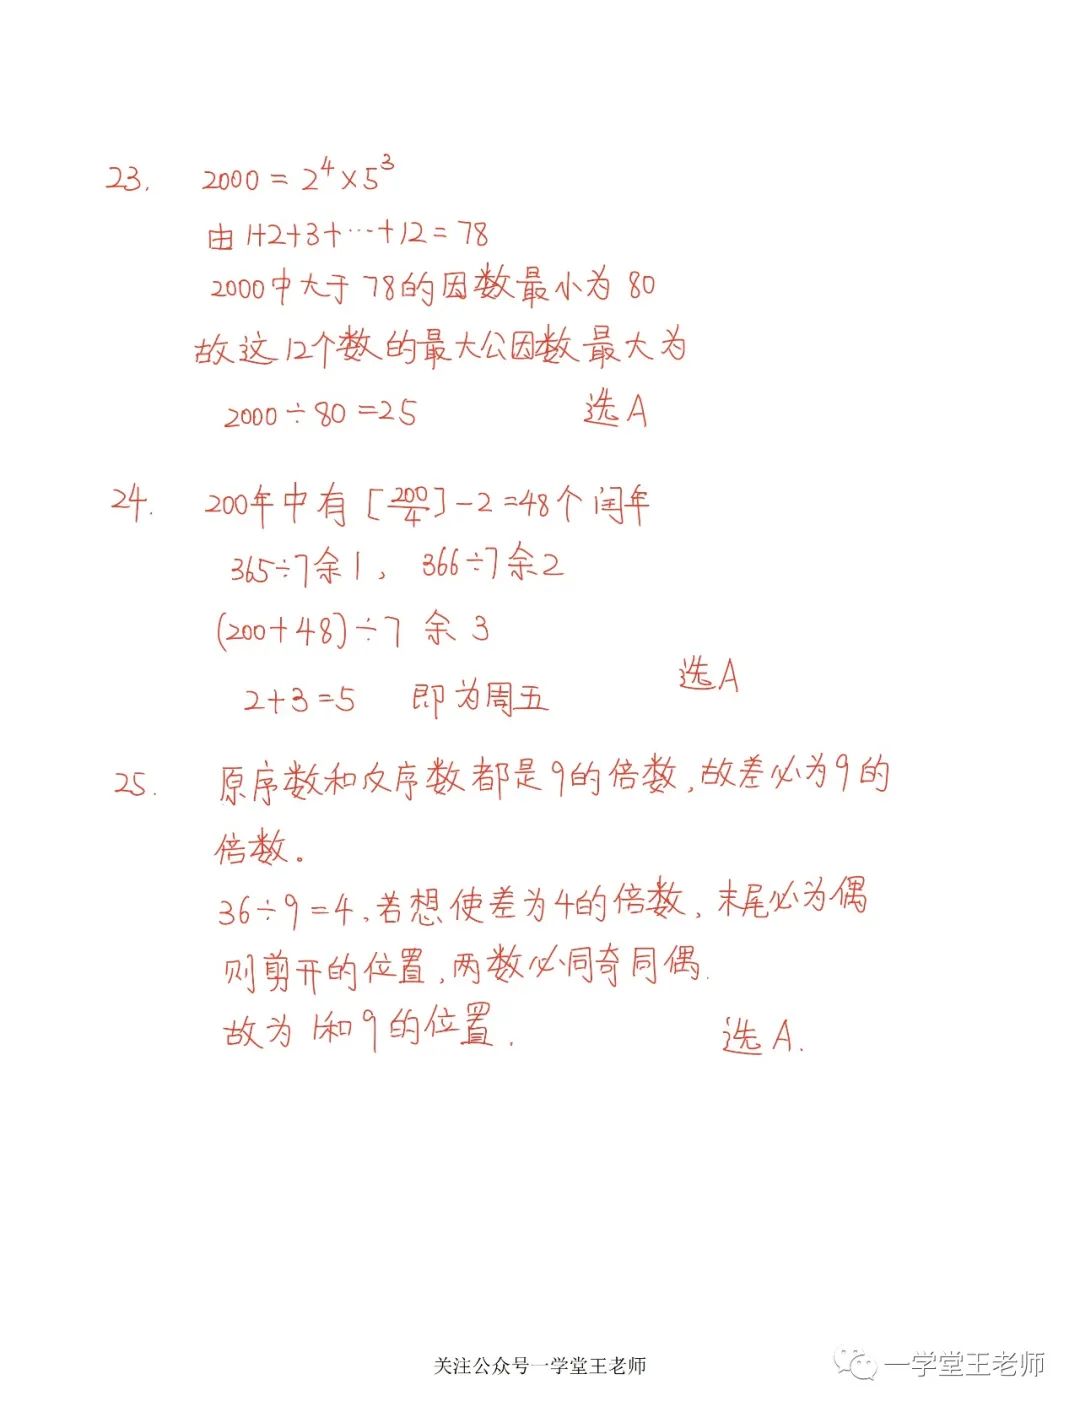 23. 2000 = 2⁴×5³
由 1+2+3+…+12=78
2000中大于78的因数最小为 80
故这12个数的最大公因数最大为
2000÷80=25 选A
24. 200年中有 [200/4]-2=48个闰年
365÷7余1, 366÷7余2
(200+48)÷7 余 3
选A
2+3=5 即为周五
25. 原序数和反序数都是9的倍数,故差必为9的
倍数。
36÷9=4,若想使差为4的倍数,末尾必为偶
则剪开的位置,两数必同奇同偶.
故为1和9的位置. 选A.
关注公众号一学堂王老师
一学堂王老师